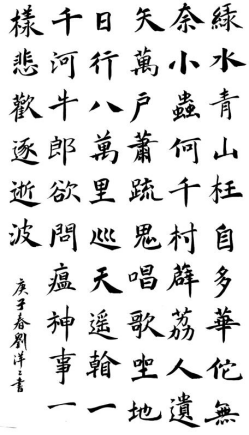 綠水青山枉自多華佗無
奈小蟲何千村薜荔人遺
矢萬戶蕭疏鬼唱歌坐地
日行八萬里巡天遙翰一
千河牛郎欲問瘟神事一
樣悲歡逐逝波
庚子春劉洋〻書